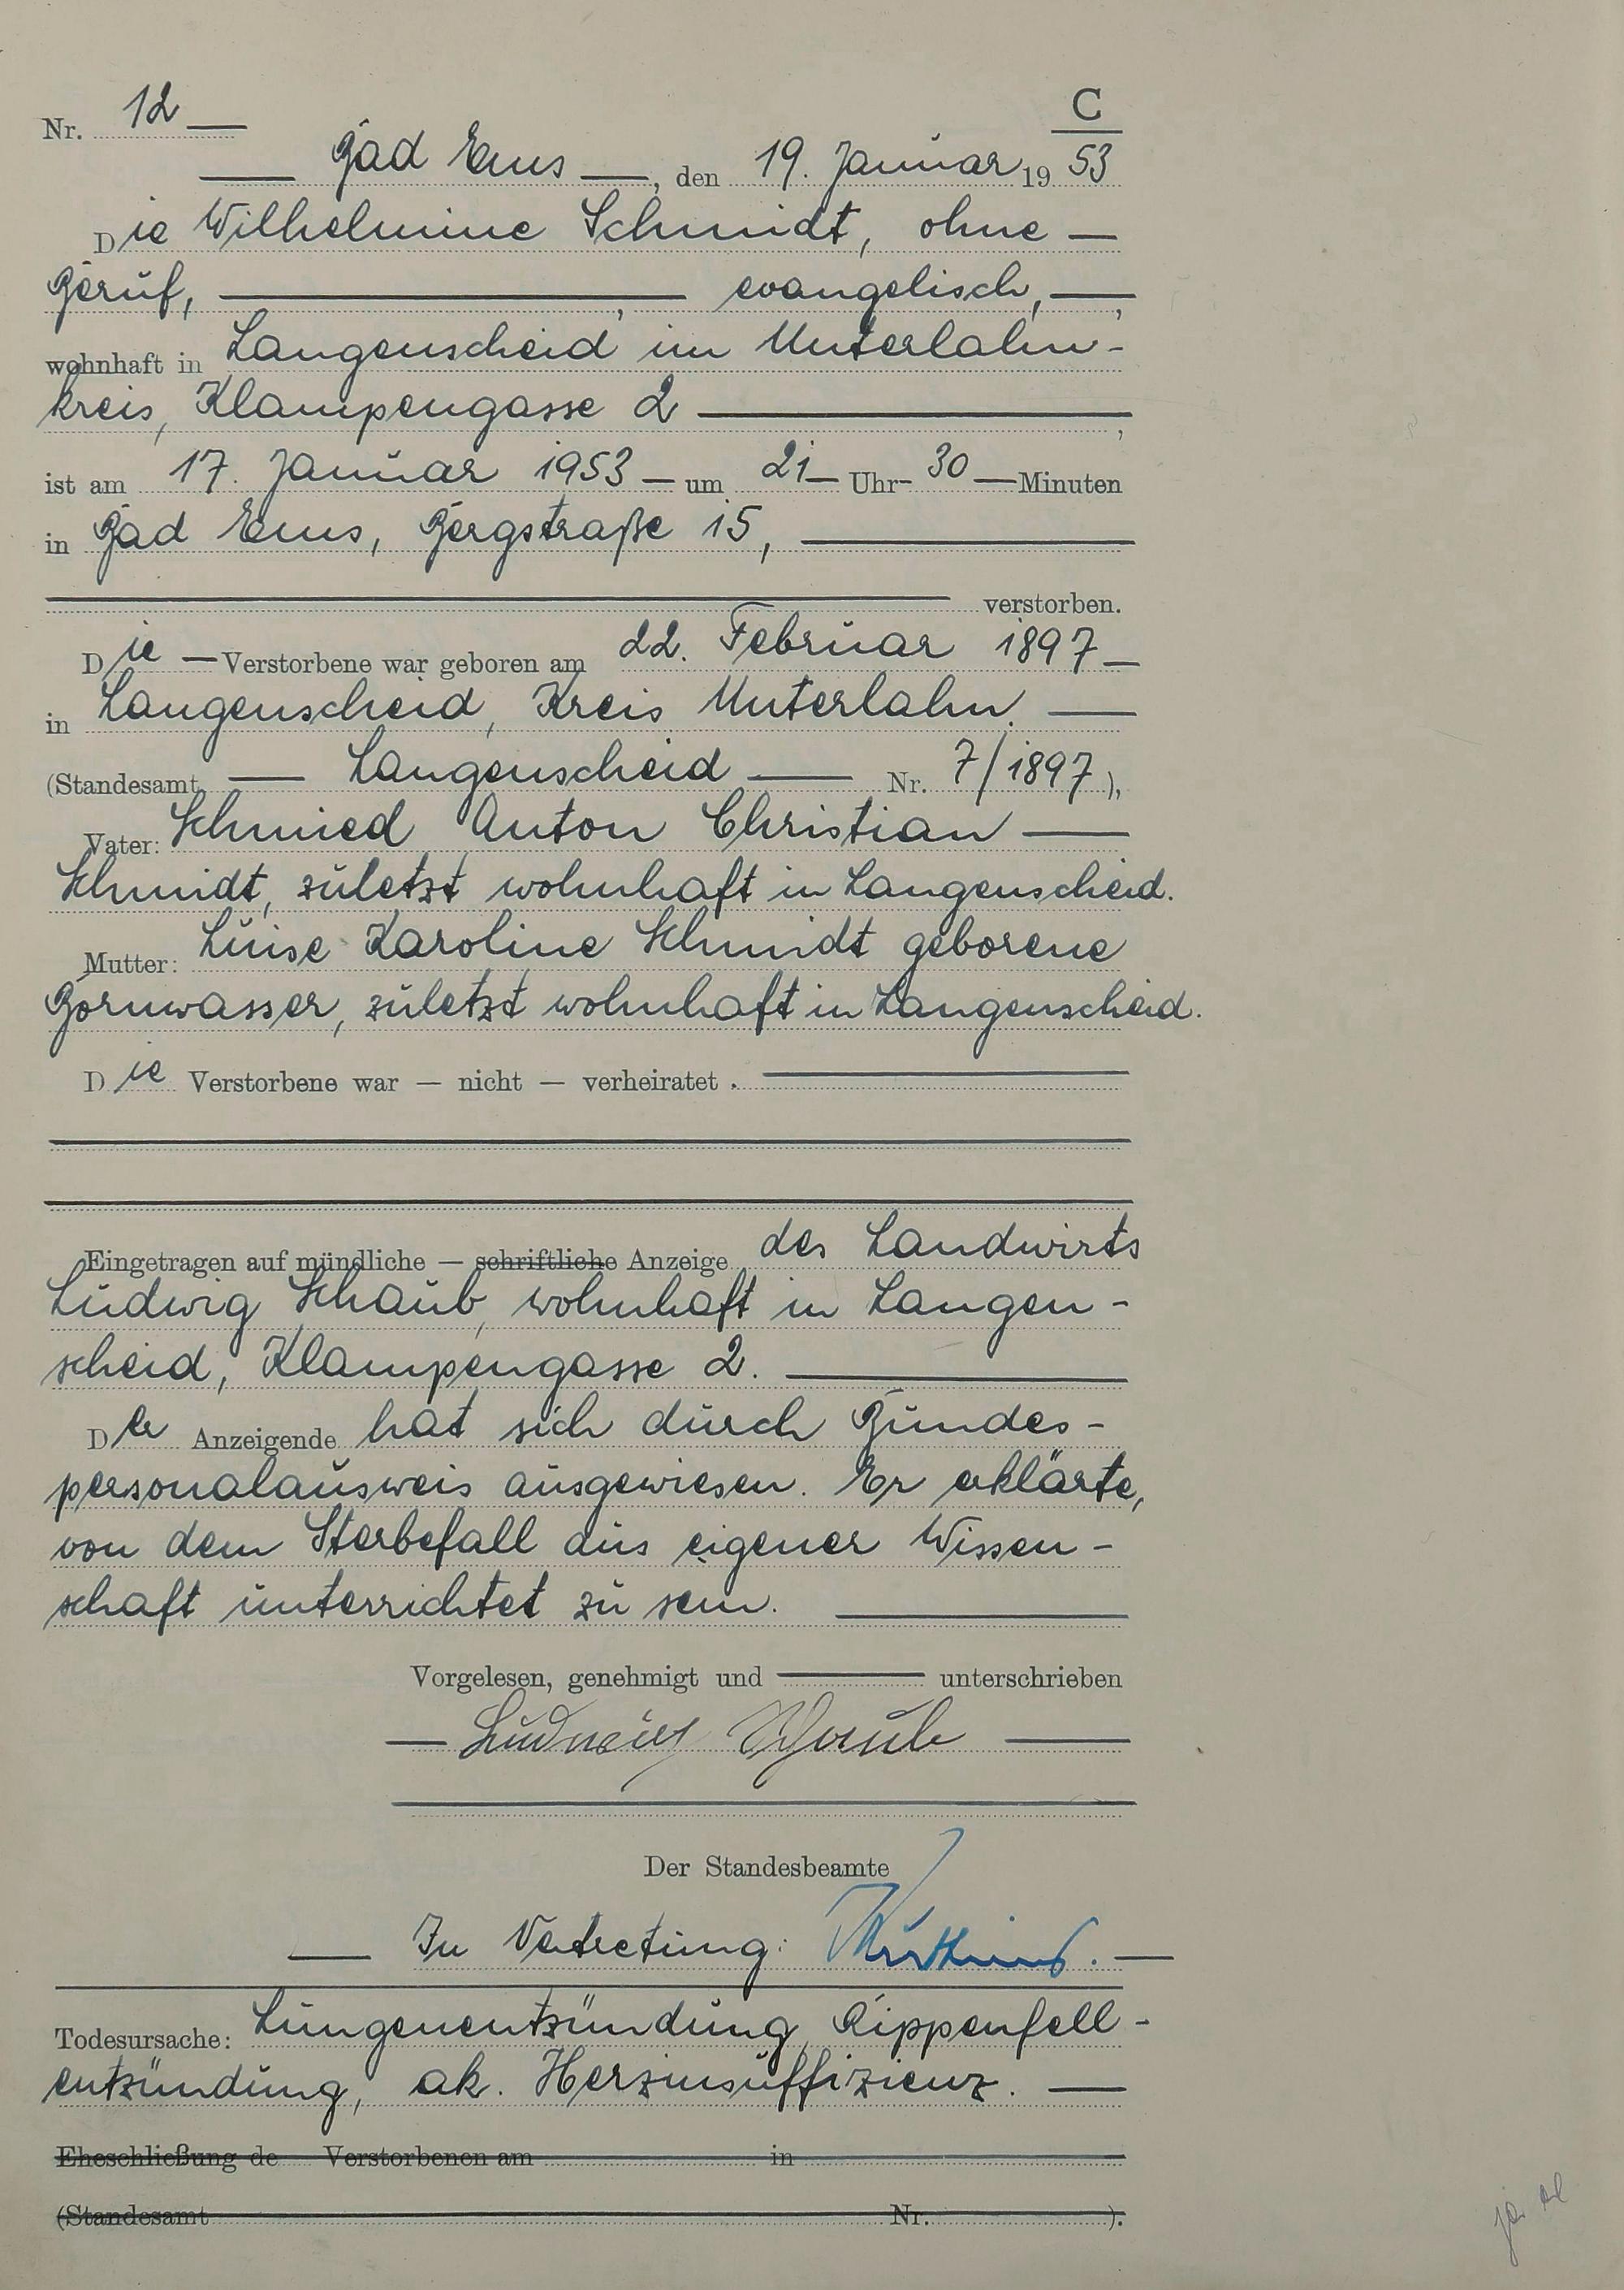 C
Nr. 12 —
— Bad Ems —, den 19. Januar 19 53
Die Wilhelmine Schmidt, ohne —
Beruf, —, evangelisch, —,
wohnhaft in Langenscheid im Unterlahn-
kreis, Klampengasse 2 —,
ist am 17. Januar 1953 — um 21 — Uhr - 30 — Minuten
in Bad Ems, Bergstraße 15, —
— verstorben.
Die — Verstorbene war geboren am 22. Februar 1897 —
in Langenscheid, Kreis Unterlahn. —
(Standesamt — Langenscheid — Nr. 7/1897),
Vater: Schmied Anton Christian —
Schmidt, zuletzt wohnhaft in Langenscheid.
Mutter: Luise Karoline Schmidt geborene
Bornwasser, zuletzt wohnhaft in Langenscheid.
Die Verstorbene war — nicht — verheiratet. —
Eingetragen auf mündliche — schriftliche Anzeige des Landwirts
Ludwig Schaub, wohnhaft in Langen-
scheid, Klampengasse 2. —
Der Anzeigende hat sich durch Bundes-
personalausweis ausgewiesen. Er erklärte,
von dem Sterbefall aus eigener Wissen-
schaft unterrichtet zu sein. —
Vorgelesen, genehmigt und — unterschrieben
— Ludwig Schaub —
Der Standesbeamte
— In Vertretung: —
Todesursache: Lungenentzündung, Rippenfell-
entzündung, ak. Herzinsuffizienz. —
Eheschließung de Verstorbenen am in
(Standesamt Nr. ).